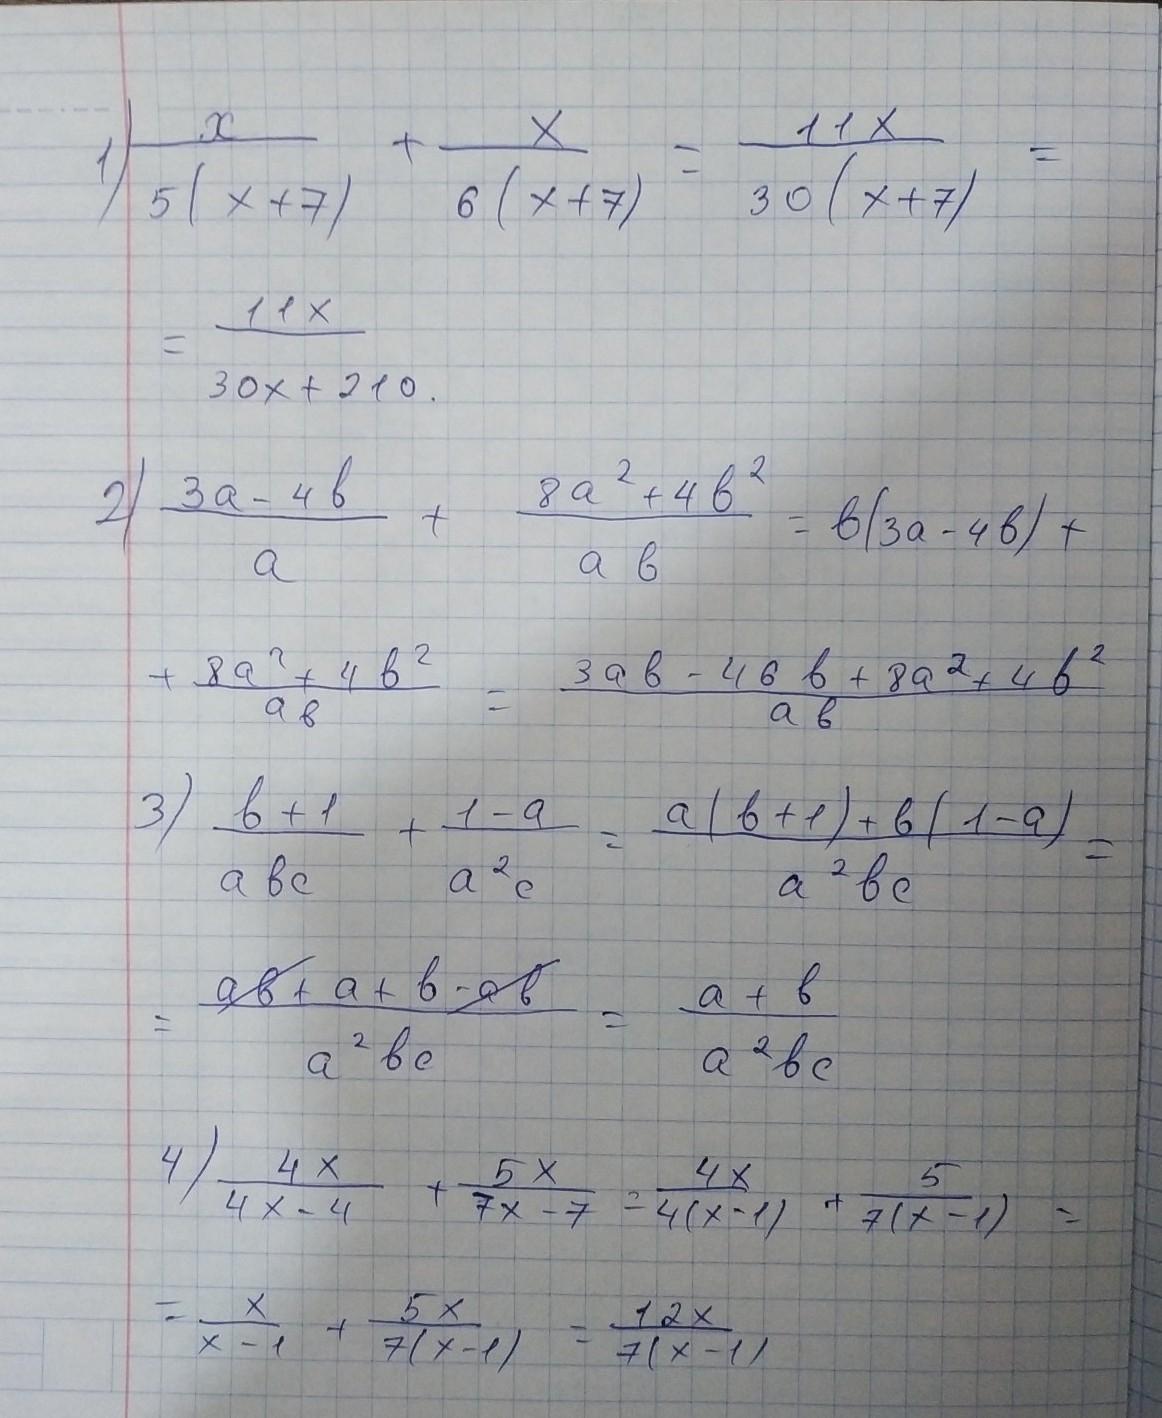 1) x/(5(x+7)) + x/(6(x+7)) = 11x/(30(x+7)) =
= 11x/(30x+210).
2) (3a-4b)/a + (8a²+4b²)/(ab) = b(3a-4b)+
+ (8a²+4b²)/(ab) = (3ab-4bb+8a²+4b²)/(ab)
3) (b+1)/(abc) + (1-a)/(a²c) = (a(b+1)+b(1-a))/(a²bc) =
= (ab+a+b-ab)/(a²bc) = (a+b)/(a²bc)
4) 4x/(4x-4) + 5x/(7x-7) = 4x/(4(x-1)) + 5/(7(x-1)) =
= x/(x-1) + 5x/(7(x-1)) = 12x/(7(x-1))